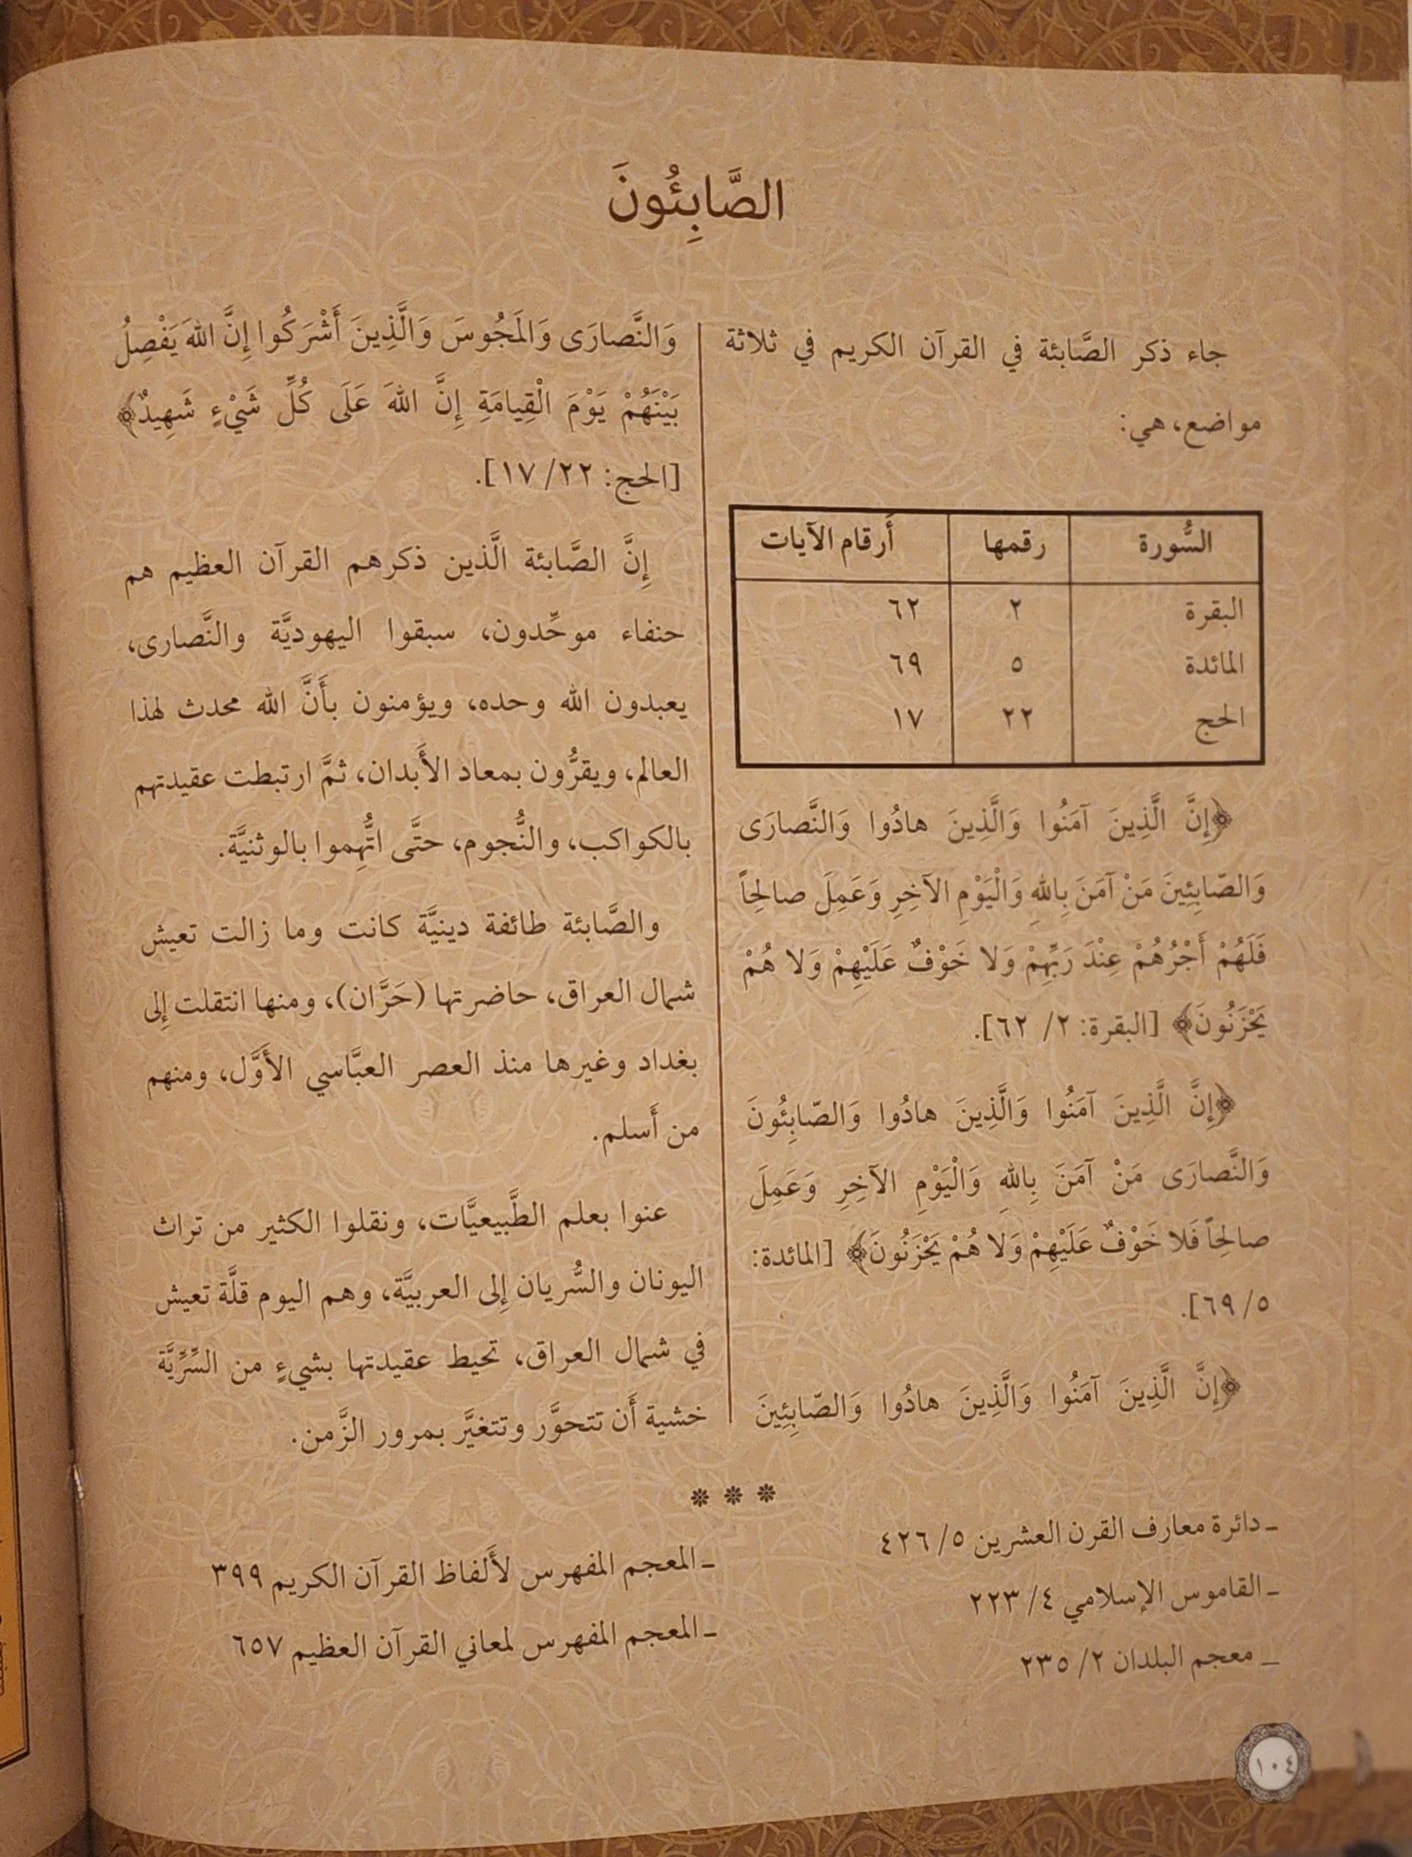 الصَّابِئُونَ
جاء ذكر الصَّابئة في القرآن الكريم في ثلاثة
مواضع، هي:
السُّورة رقمها أَرقام الآيات
البقرة ٢ ٦٢
المائدة ٥ ٦٩
الحج ٢٢ ١٧
﴿إِنَّ الَّذِينَ آمَنُوا وَالَّذِينَ هادُوا وَالنَّصارَى
وَالصّابِئِينَ مَنْ آمَنَ بِاللهِ وَالْيَوْمِ الآخِرِ وَعَمِلَ صالِحاً
فَلَهُمْ أَجْرُهُمْ عِنْدَ رَبِّهِمْ وَلا خَوْفٌ عَلَيْهِمْ وَلا هُمْ
يَحْزَنُونَ﴾ [البقرة: ٢/ ٦٢].
﴿إِنَّ الَّذِينَ آمَنُوا وَالَّذِينَ هادُوا وَالصّابِئُونَ
وَالنَّصارَى مَنْ آمَنَ بِاللهِ وَالْيَوْمِ الآخِرِ وَعَمِلَ
صالِحاً فَلا خَوْفٌ عَلَيْهِمْ وَلا هُمْ يَحْزَنُونَ﴾ [المائدة:
٥/ ٦٩].
﴿إِنَّ الَّذِينَ آمَنُوا وَالَّذِينَ هادُوا وَالصّابِئِينَ
وَالنَّصارَى وَالمَجُوسَ وَالَّذِينَ أَشْرَكُوا إِنَّ اللهَ يَفْصِلُ
بَيْنَهُمْ يَوْمَ الْقِيامَةِ إِنَّ اللهَ عَلَى كُلِّ شَيْءٍ شَهِيدٌ﴾
[الحج: ٢٢/ ١٧].
إِنَّ الصَّابئة الَّذين ذكرهم القرآن العظيم هم
حنفاء موحِّدون، سبقوا اليهوديَّة والنَّصارى،
يعبدون الله وحده، ويؤمنون بأَنَّ الله محدث لهذا
العالم، ويقرُّون بمعاد الأَبدان، ثمَّ ارتبطت عقيدتهم
بالكواكب، والنُّجوم، حتَّى اتُّهِموا بالوثنيَّة.
والصَّابئة طائفة دينيَّة كانت وما زالت تعيش
شمال العراق، حاضرتها (حَرَّان)، ومنها انتقلت إِلى
بغداد وغيرها منذ العصر العبَّاسي الأَوَّل، ومنهم
من أَسلم.
عنوا بعلم الطَّبيعيَّات، ونقلوا الكثير من تراث
اليونان والسُّريان إِلى العربيَّة، وهم اليوم قلَّة تعيش
في شمال العراق، تحيط عقيدتها بشيءٍ من السِّرِّيَّة
خشية أَن تتحوَّر وتتغيَّر بمرور الزَّمن.
* * *
ـ دائرة معارف القرن العشرين ٥/ ٤٢٦
ـ القاموس الإسلامي ٤/ ٢٢٣
ـ معجم البلدان ٢/ ٢٣٥
ـ المعجم المفهرس لأَلفاظ القرآن الكريم ٣٩٩
ـ المعجم المفهرس لمعاني القرآن العظيم ٦٥٧
١٠٤